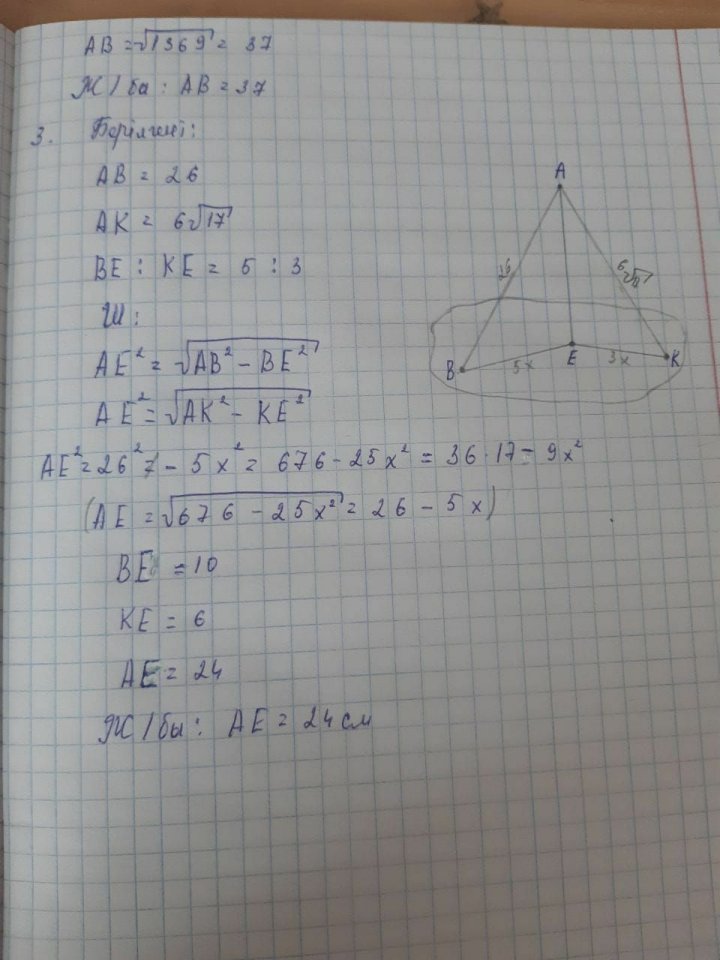 AB = √1369 = 37
Ж/бы : AB = 37
3. Берілгені:
AB = 26
AK = 6√17
BE : KE = 5 : 3
Ш:
AE² = √AB² - BE²
AE² = √AK² - KE²
AE² = 26² - 5x² = 676 - 25x² = 36·17 - 9x²
(AE = √676 - 25x² = 26 - 5x)
BE = 10
KE = 6
AE = 24
Ж/бы : AE = 24 см
A
26
6√17
B
5x
E
3x
K